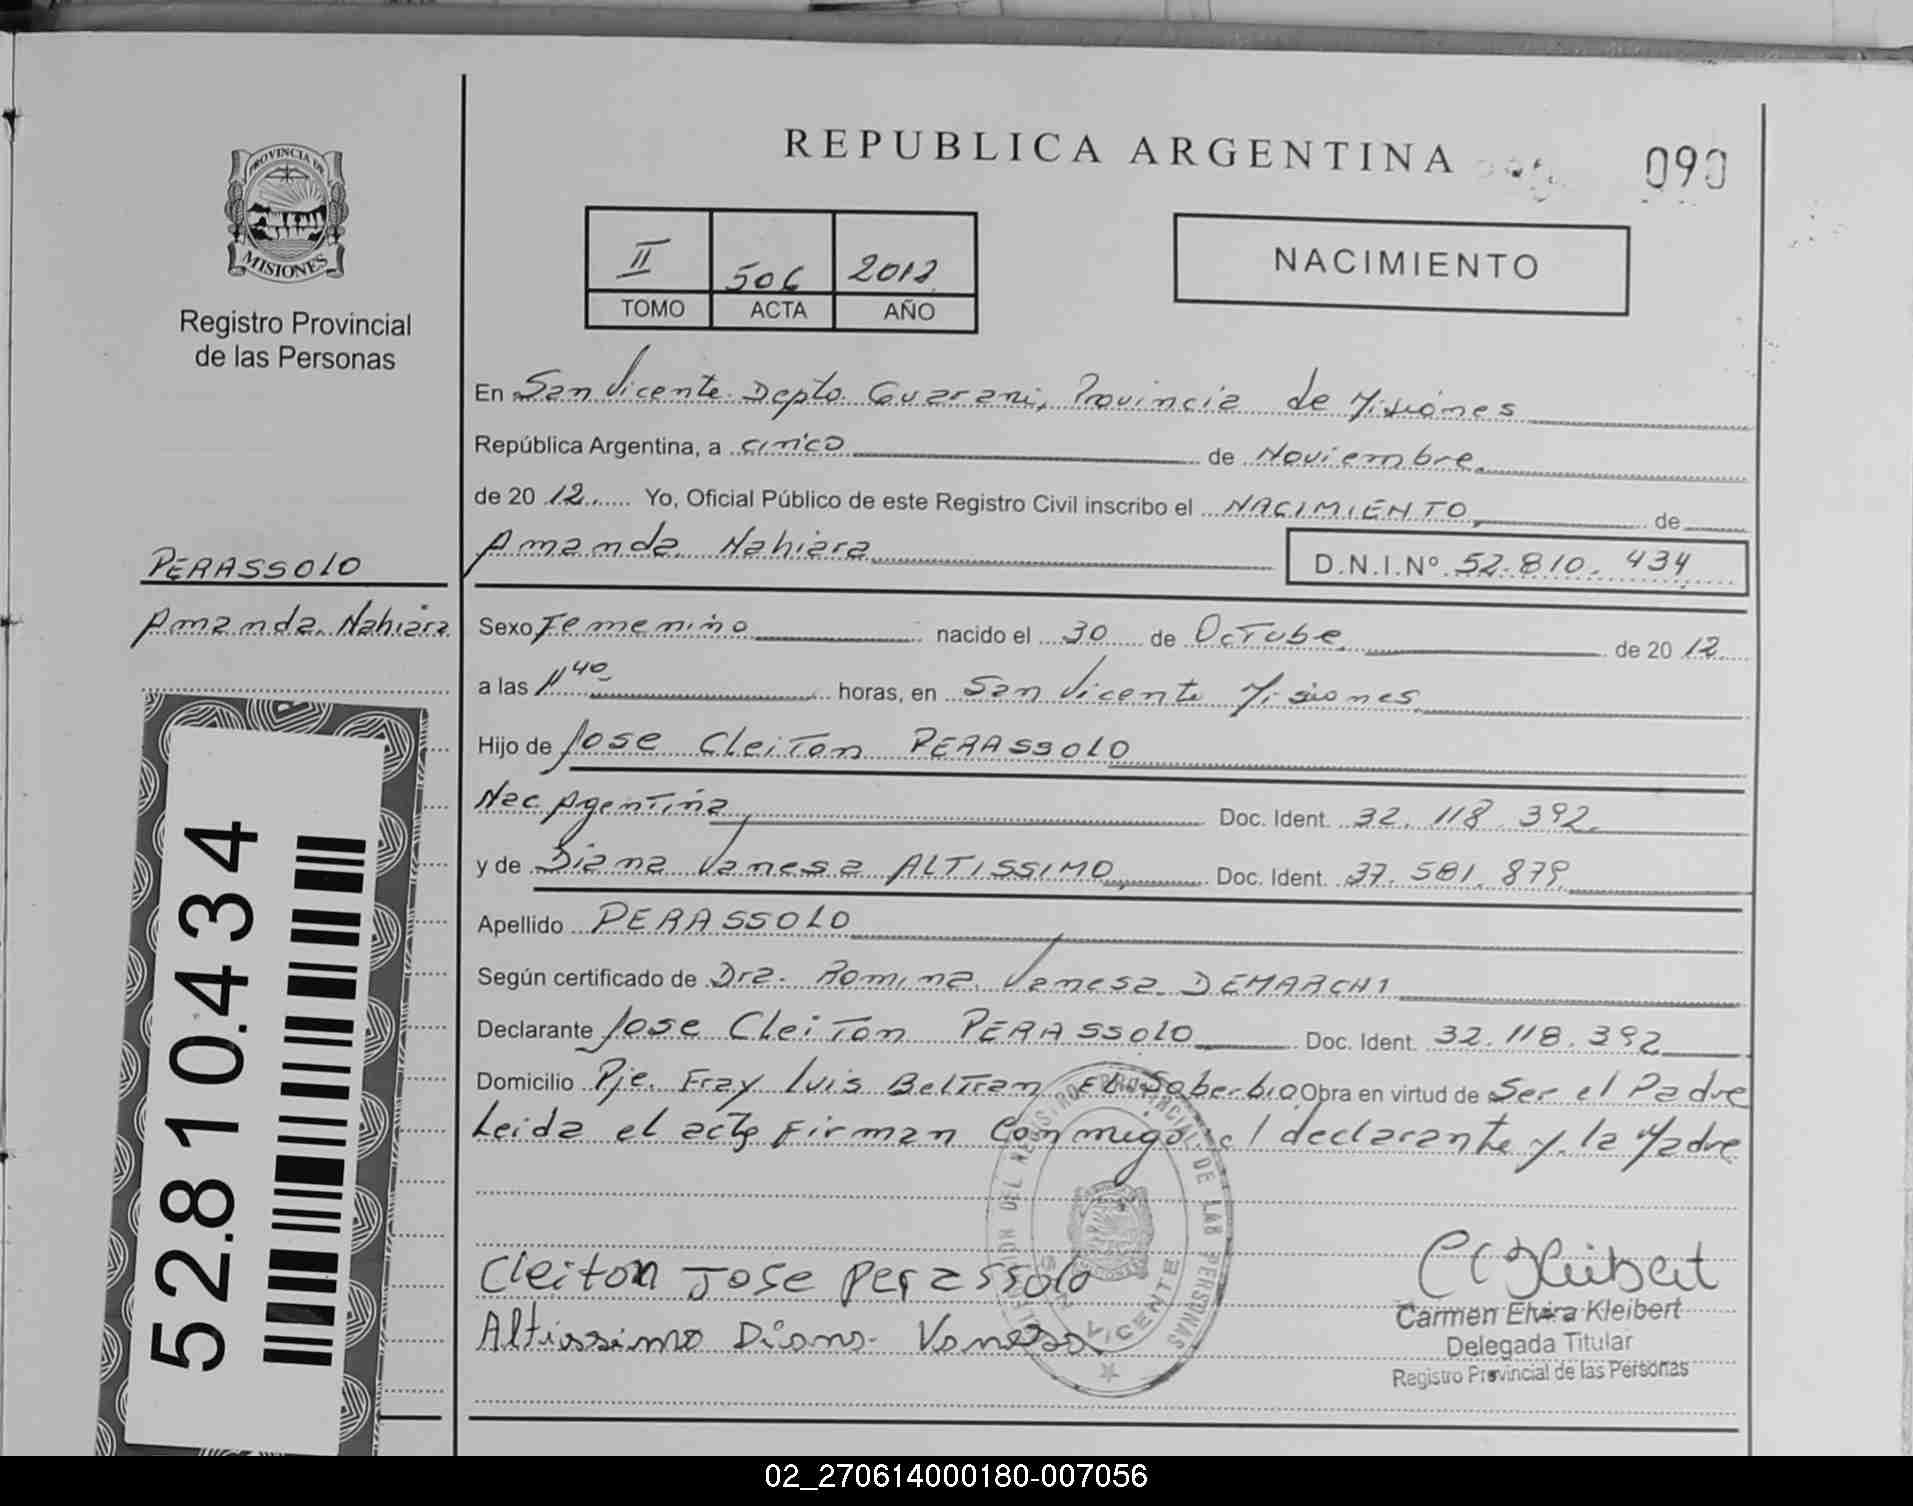 REPUBLICA ARGENTINA
090
PROVINCIA DE
MISIONES
Registro Provincial
de las Personas
II 506 2012
TOMO ACTA AÑO
NACIMIENTO
En San Vicente Depto. Guarani, Provincia de Misiones
República Argentina, a cinco de Noviembre
de 20 12 Yo, Oficial Público de este Registro Civil inscribo el NACIMIENTO de
Amanda Nahiara D.N.I.Nº 52.810.434
PERASSOLO
Amanda Nahiara
Sexo Femenino nacido el 30 de Octube de 20 12
a las 11 40 horas, en San Vicente Misiones
Hijo de Jose Cleiton PERASSOLO
Nac Agentina Doc. Ident. 32.118.392
y de Diana Vanesa ALTISSIMO Doc. Ident. 37.581.879
Apellido PERASSOLO
Según certificado de Dra. Romina Vanesa DEMARCHI
Declarante Jose Cleiton PERASSOLO Doc. Ident. 32.118.392
Domicilio Pje. Fray Luis Beltran El Soberbio Obra en virtud de Ser el Padre
Leida el acta Firman Conmigo el declarante y la Madre
52.810.434
DEL REGISTRO PROVINCIAL DE LAS PERSONAS
SAN VICENTE
Cleiton Jose Perassolo
Altissimo Diana Vanesa
C E Kleibert
Carmen Elvira Kleibert
Delegada Titular
Registro Provincial de las Personas
02_270614000180-007056